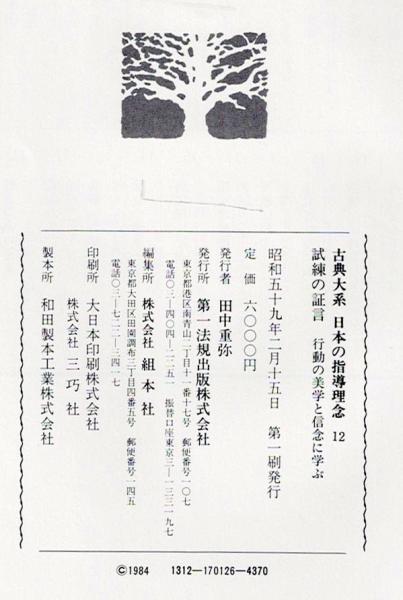 古典大系 日本の指導理念 12
試練の証言 行動の美学と信念に学ぶ
昭和五十九年二月十五日 第一刷発行
定価 六〇〇〇円
発行者 田中重弥
発行所 第一法規出版株式会社
東京都港区南青山二丁目十一番十七号 郵便番号一〇七
電話〇三―四〇四―二二五一 振替口座東京三―一三三一九七
編集所 株式会社 組本社
東京都大田区田園調布三丁目四番五号 郵便番号一四五
電話〇三―七二二―三四一七
印刷所 大日本印刷株式会社
株式会社 三巧社
製本所 和田製本工業株式会社
©1984 1312―170126―4370